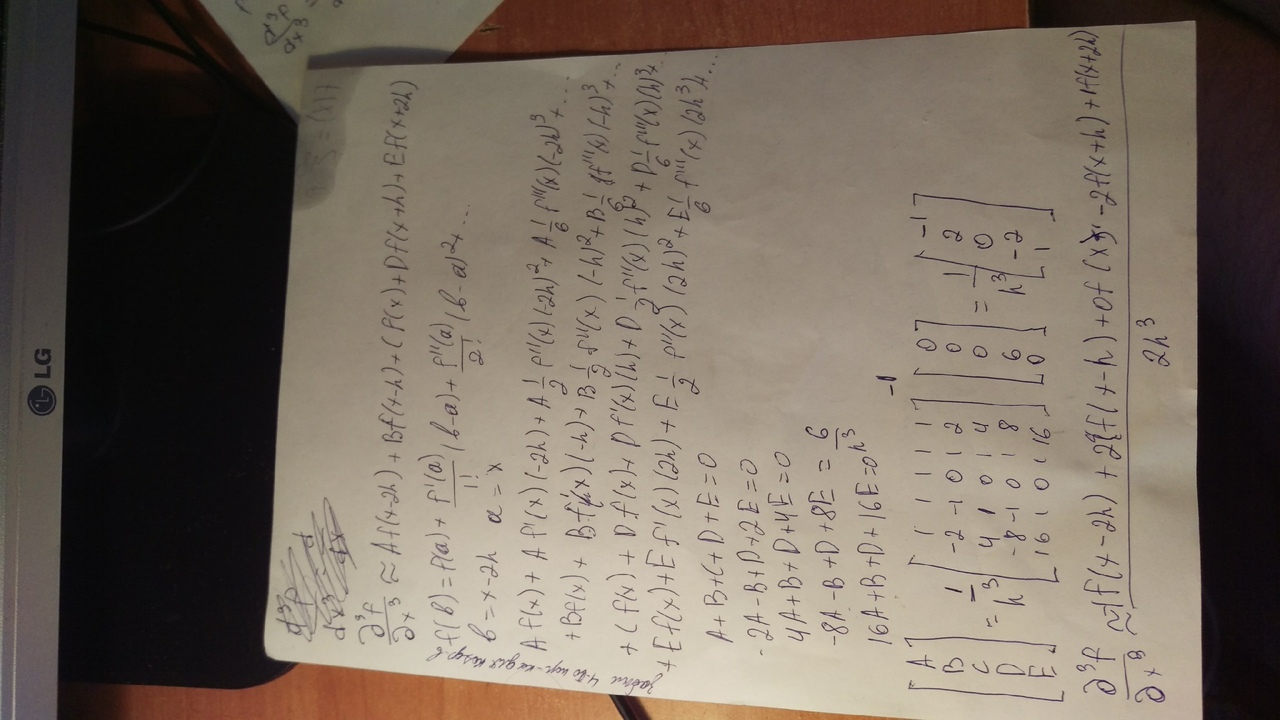 LG
d³f d
dx³ dx
F(x) =
d³f
dx³
∂³f/∂x³ ≈ Af(x-2h) + Bf(x-h) + Cf(x) + Df(x+h) + Ef(x+2h)
f(b) = f(a) + f'(a)/1! (b-a) + f''(a)/2! (b-a)² + ...
b = x-2h a = x
A f(x) + A f'(x)(-2h) + A 1/2 f''(x)(-2h)² + A 1/6 f'''(x)(-2h)³ + ...
+Bf(x) + Bf'(x)(-h) + B 1/2 f''(x)(-h)² + B 1/6 f'''(x)(-h)³ + ...
+ Cf(x) + Df(x) + Df'(x)(h) + D 1/2 f''(x)(h)² + D 1/6 f'''(x)(h)³ + ...
+ Ef(x) + Ef'(x)(2h) + E 1/2 f''(x)(2h)² + E 1/6 f'''(x)(2h³) + ...
A+B+C+D+E=0
-2A-B+D+2E=0
4A+B+D+4E=0
-8A-B+D+8E = 6/h³
16A+B+D+16E=0
-1
A 1 1 1 1 1 0 -1
B -2 -1 0 1 2 0 2
C = 1/h³ 4 1 0 1 4 0 = 1/h³ 0
D -8 -1 0 1 8 6 -2
E 16 1 0 1 16 0 1
∂³f/∂x³ ≈ -1f(x-2h) + 2f(x-h) + 0f(x) - 2f(x+h) + 1f(x+2h)
2h³